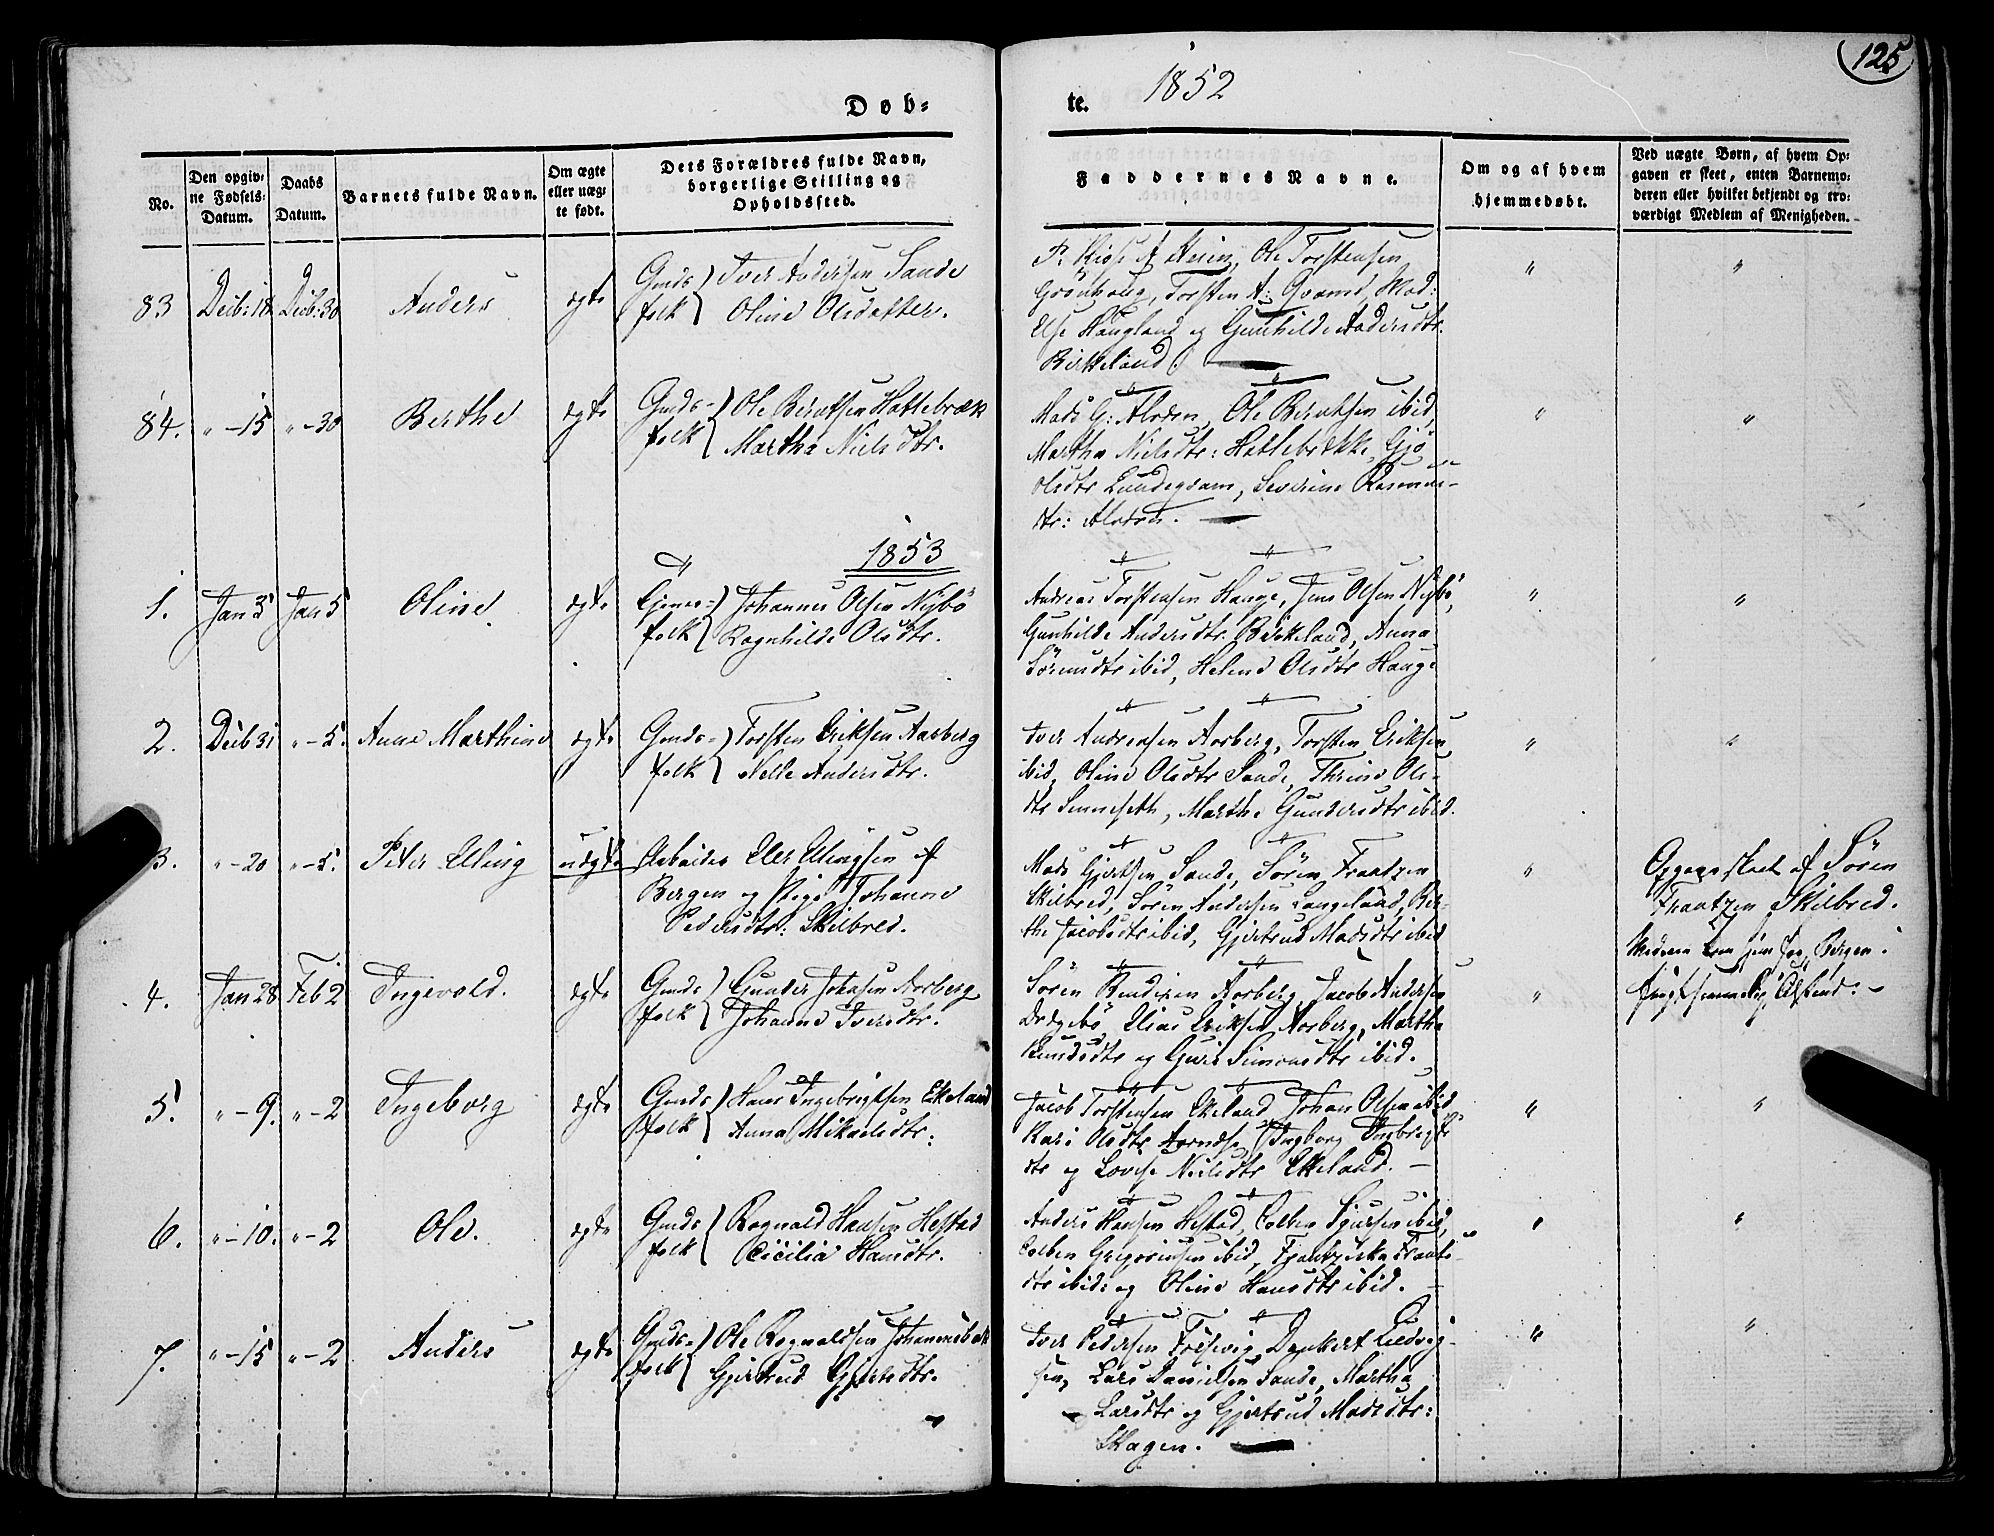 125
Døb=
te.
1852
No.
Den opgiv=
ne Fødsels=
Datum.
Daabs
Datum.
Barnets fulde Navn.
Om ægte
eller uæg=
te født.
Dets Forældres fulde Navn,
borgerlige Stilling og
Opholdssted.
Faddernes Navne.
Om og af hvem
hjemmedøbt.
Ved uægte Børn, af hvem Op=
gaven er skeet, enten Barnemo=
deren eller hvilket bekjendt og tro=
værdigt Medlem af Menigheden.
83 Decb: 18 Decb: 30 Anders ægte
Gmds folk Iver Andersen Sande
Oline Olsdatter.
Ole Torstensen
Grönhaug, Torsten A: Qvamd, Mad:
Else Haugland og Gunhilde Andersdtr.
Birkeland.
84. " - 15 " - 30 Berthe ægte
Gmds- folk Ole Berntsen Hattebræk
Martha Nielsdtr.
Mads G: Alvden, Ole Berntsen ibid,
Martha Nielsdtr: Hattebrekke, Gjö
Olsdtr Lundeqvam, Severine Rasmus-
dtr: Alvden.
1853
1. Jan 3 Jan 5 Oline. ægte
folk Johannes Olsen Nybö
Ragnhilde Olsdtr.
Andreas Torstensen Hauge, Jens Olsen Nybö,
Gunhilde Andersdtr. Birkeland, Anna
Sörensdtr ibid, Helene Olsdtr Hauge
2. Decb 31 " - 5. Anne Marthine ægte
Gmds- folk Torsten Eriksen Aarberg
Nelle Andersdtr.
Iver Andreasen Aarberg, Torsten Eriksen
ibid, Oline Olsdtr Sande, Thrine Ols-
dtr Sunnseth, Marthe Gundersdtr ibid.
3. " - 20 " - 5. Peter Elling uægte
Arbeider Eler Ellingsen af
Bergen og Pige Johanne
Pedersdtr: Skilbred.
Mads Gjertsen Sande, Sören Frantzen
Skilbred, Sören Andersen Langeland, Ber-
the Jacobsdtr ibid, Gjertrud Madsdtr ibid
Opgave skeet af Sören
Frantzen Skilbred.
4. Jan 28 Feb 2 Ingevold. ægte
Gmds folk Gunder Johnsen Aarberg
Johanne Iversdtr.
Sören Aarberg, Jacob Andersen
Elias Eriksen Aarberg, Martha
Knudsdtr og Guri Simonsdtr ibid.
5. " - 9. " - 2 Ingeborg ægte
Gmds folk Hans Ingebrigtsen Ekeland
Anna Mikaelsdtr:
Jacob Torstensen Ekeland, Johan Olsen ibid
Kari Olsdtr Aarnæs, Ingborg Ingbrigts
dtr og Lovise Nielsdtr Ekeland. -
6. " - 10. " - 2 Ole. ægte
Gmds folk Ragnald Hansen Hestad
Cicilia Hansdtr.
Anders Hansen Hestad, Colben Sjursen ibid,
Colben Gregoriusen ibid, Frantziska Frants
dtr ibid: og Oline Hansdtr ibid.
7. " - 15 " - 2 Anders ægte
Gmds- folk Ole Ragnaldsen Johannesbak
Gjertrud Gjertsdtr.
Iver Pedersen Dankert Ludvig-
sen, Lars Danielsen Sande, Martha
Larsdtr og Gjertrud Madsdtr:
Skagen.